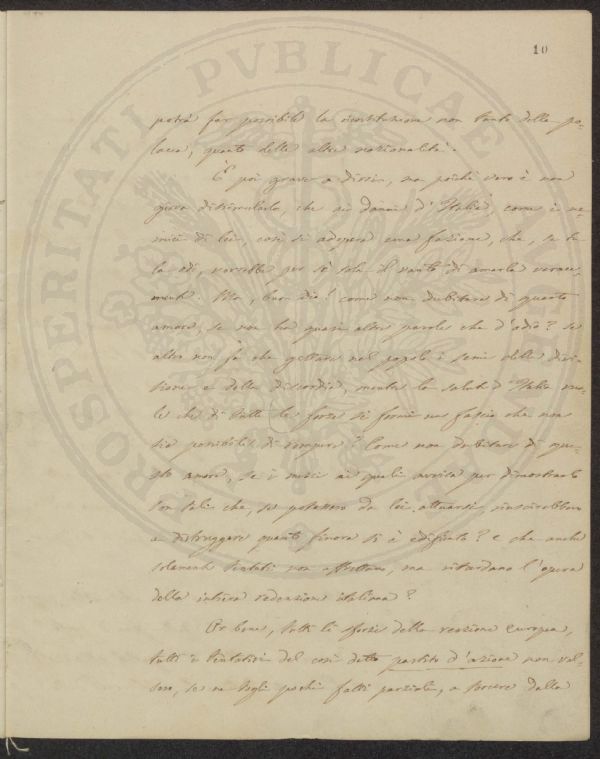 10
potrà far possibile la costituzione non tanto della po-
lacca, quanto delle altre nazionalità.
È poi grave a dirsi, ma poichè vero è non
giova dissimularlo, che ai danni d'Italia, come i ne-
mici di lei, così si adopera una fazione, che, se tu
la odi, vorrebbe per sè sola il vanto di amarla verace-
mente. Ma, buon Dio! come non dubitare di questo
amore, se non ha quasi altre parole che d'odio? se
altro non fa che gettare nel popolo i semi della divi-
sione e della discordia, mentre la salute d'Italia vuo-
le che di tutte le forze si formi un fascio che non
sia possibile di rompere? Come non dubitare di que-
sto amore, se i mezzi ai quali avvisa per dimostrarlo
son tali che, se potessero da lei attuarsi, riuscirebbero
a distruggere quanto finora si è edificato? e che anche
solamente tentati non affrettano, ma ritardano l'opera
della intiera redenzione italiana?
Or bene, tutti li sforzi della reazione europea,
tutti i tentativi del così detto partito d'azione non val-
sero, se ne togli pochi fatti parziali, a torcere dalla
PROSPERITATI PVBLICAE AVGENDAE